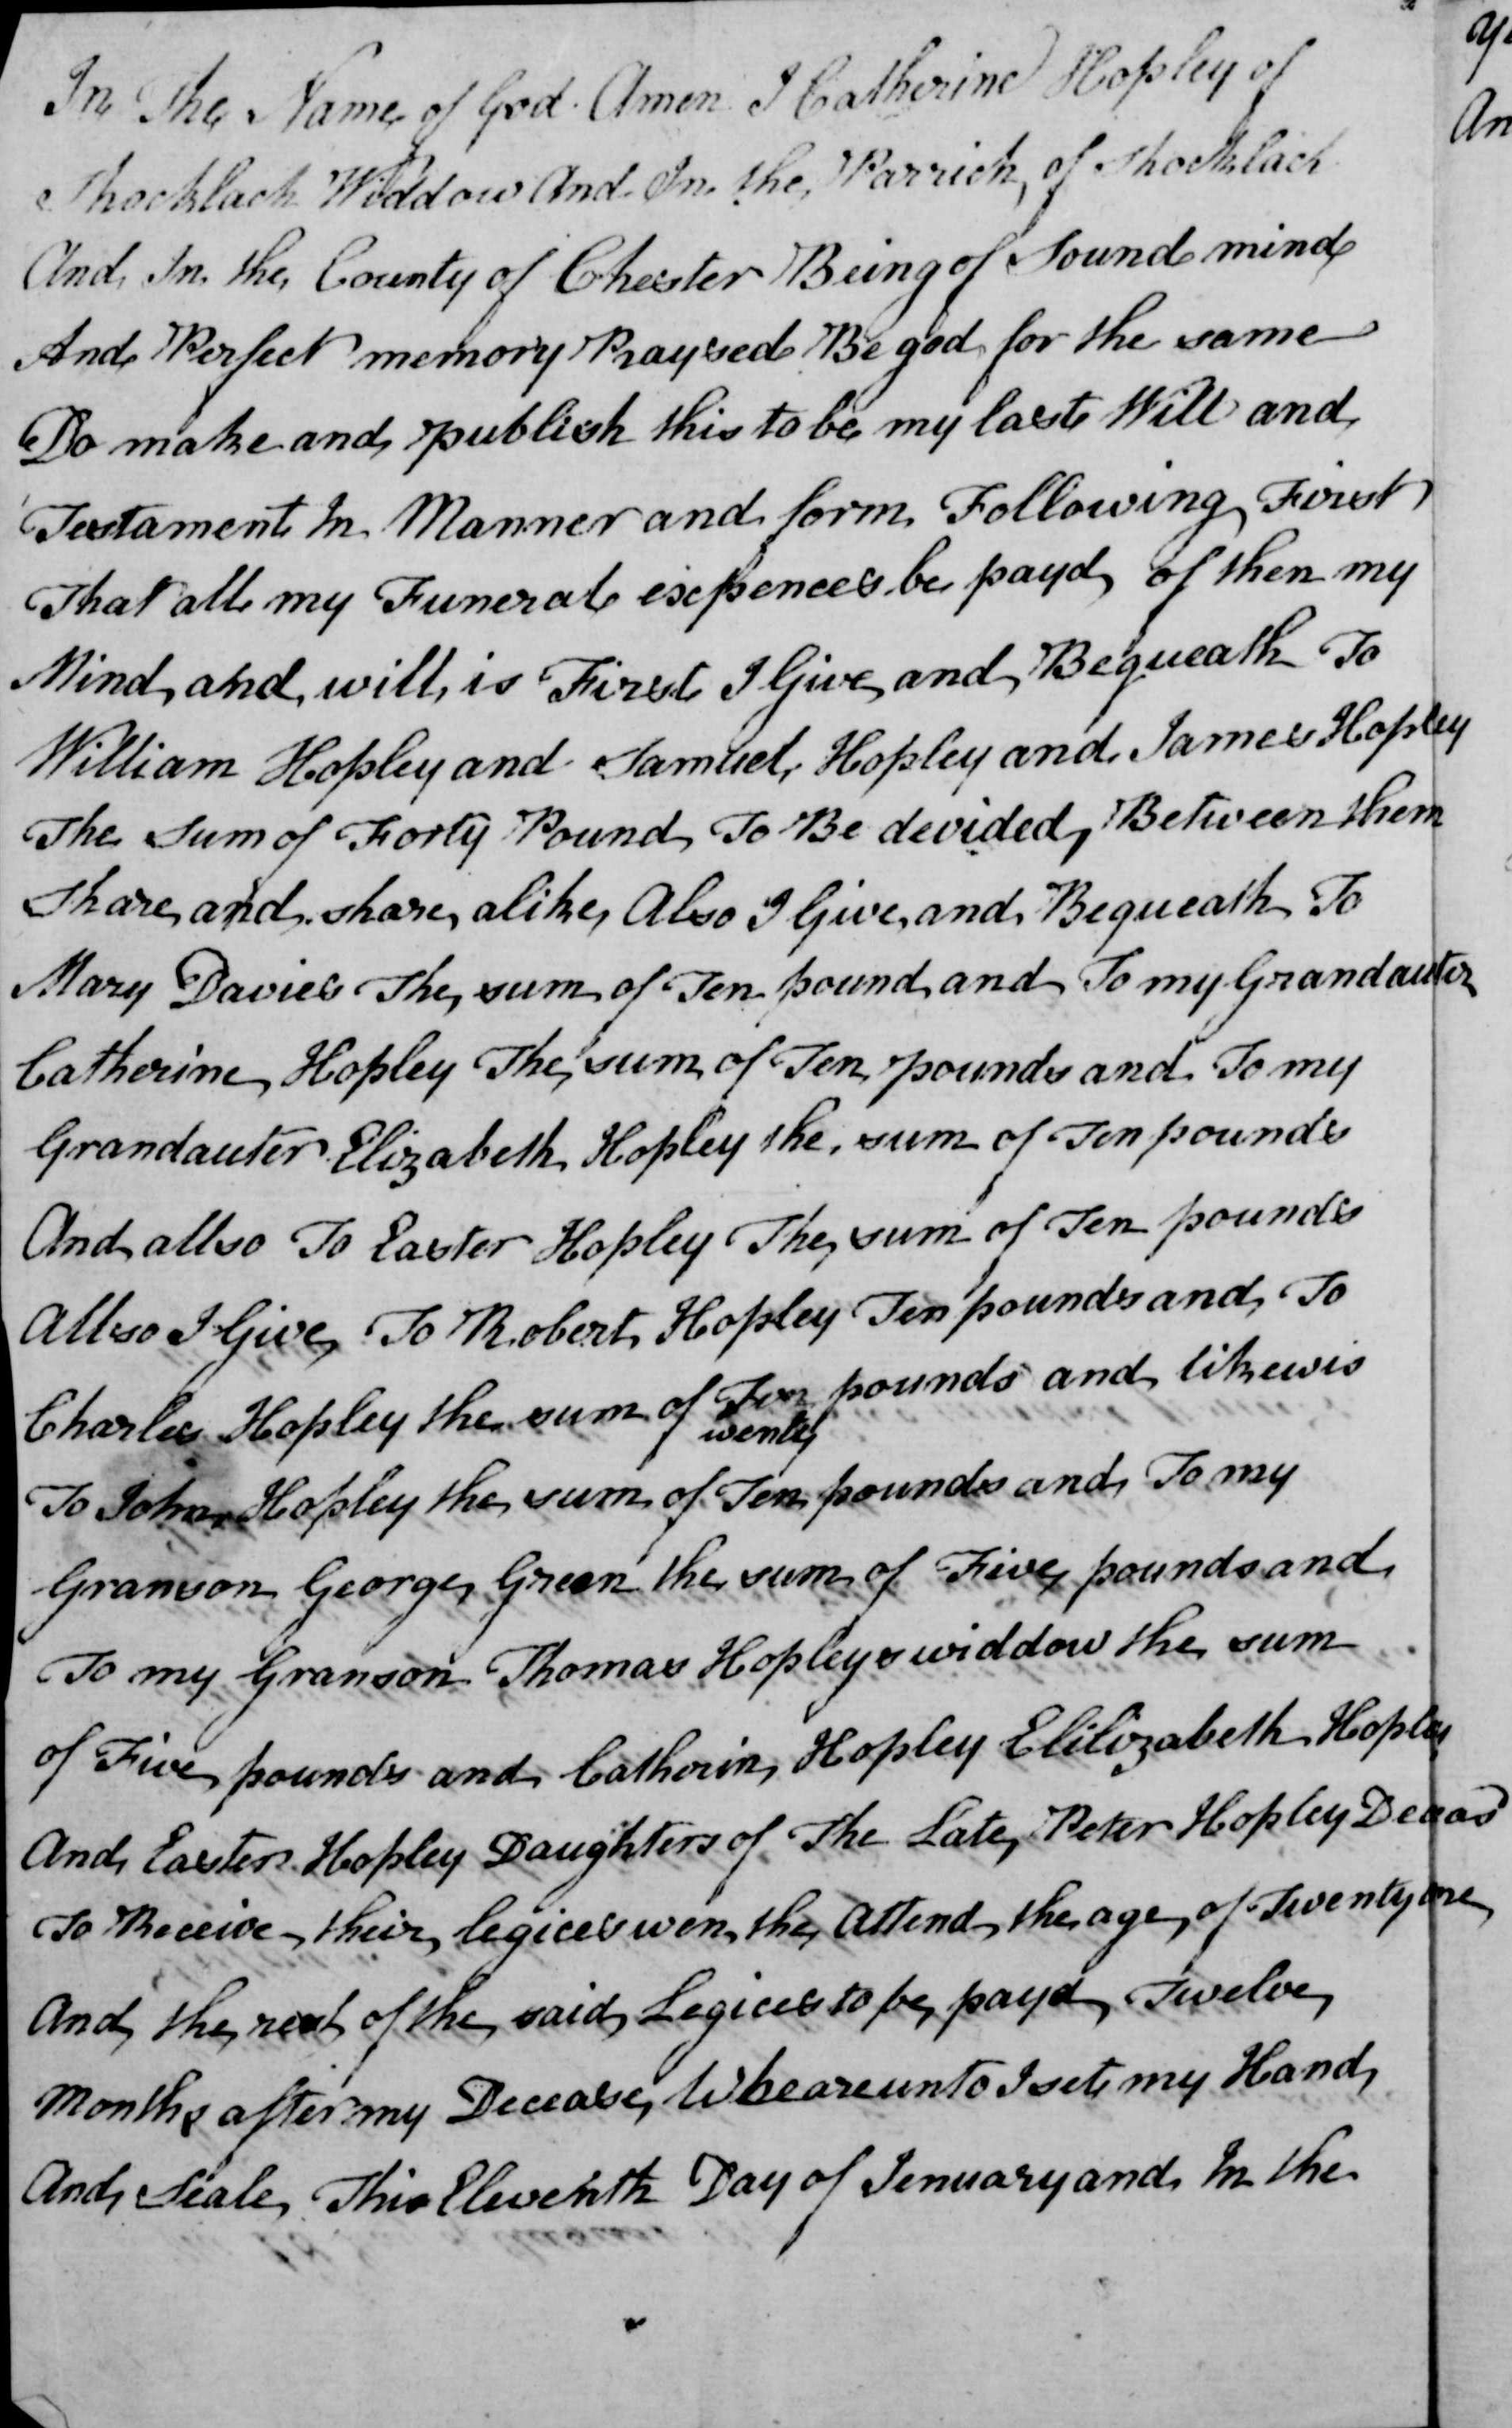 In The Name of God Amen I Catherine Hopley of
Shocklach Widdow And In the Parrich of Shocklach
And In the County of Chester Being of Sound mind
And Perfect memory Praysed Be god for the same
Do make and publish this to be my last Will and
Testament In Manner and form Following First
That all my Funeral expences be payd of then my
Mind and will is First I Give and Bequeath To
William Hopley and Samuel Hopley and James Hopley
The Sum of Forty Pound To Be devided Between them
Share and share alike Also I Give and Bequeath To
Mary Davies The sum of Ten pound and To my Grandauter
Catherine Hopley The sum of Ten pounds and To my
Grandauter Elizabeth Hopley the sum of Ten pounds
And allso To Easter Hopley The sum of Ten pounds
Allso I Give To Robert Hopley Ten pounds and To
Charles Hopley the sum of Ten pounds and likewis
wenty
To John Hopley the sum of Ten pounds and To my
Granson George Green the sum of Five pounds and
To my Granson Thomas Hopleys widdow the sum
of Five pounds and Catherin Hopley Elilizabeth Hopley
And Easter Hopley Daughters of The Late Peter Hopley Deceas
To Receive their legices wen the Attend the age of Twenty one
And the rest of the said Legices to be payd Twelve
Months after my Decease Wheareunto I set my Hand
And Seale This Eleventh Day of Jenuary and In the